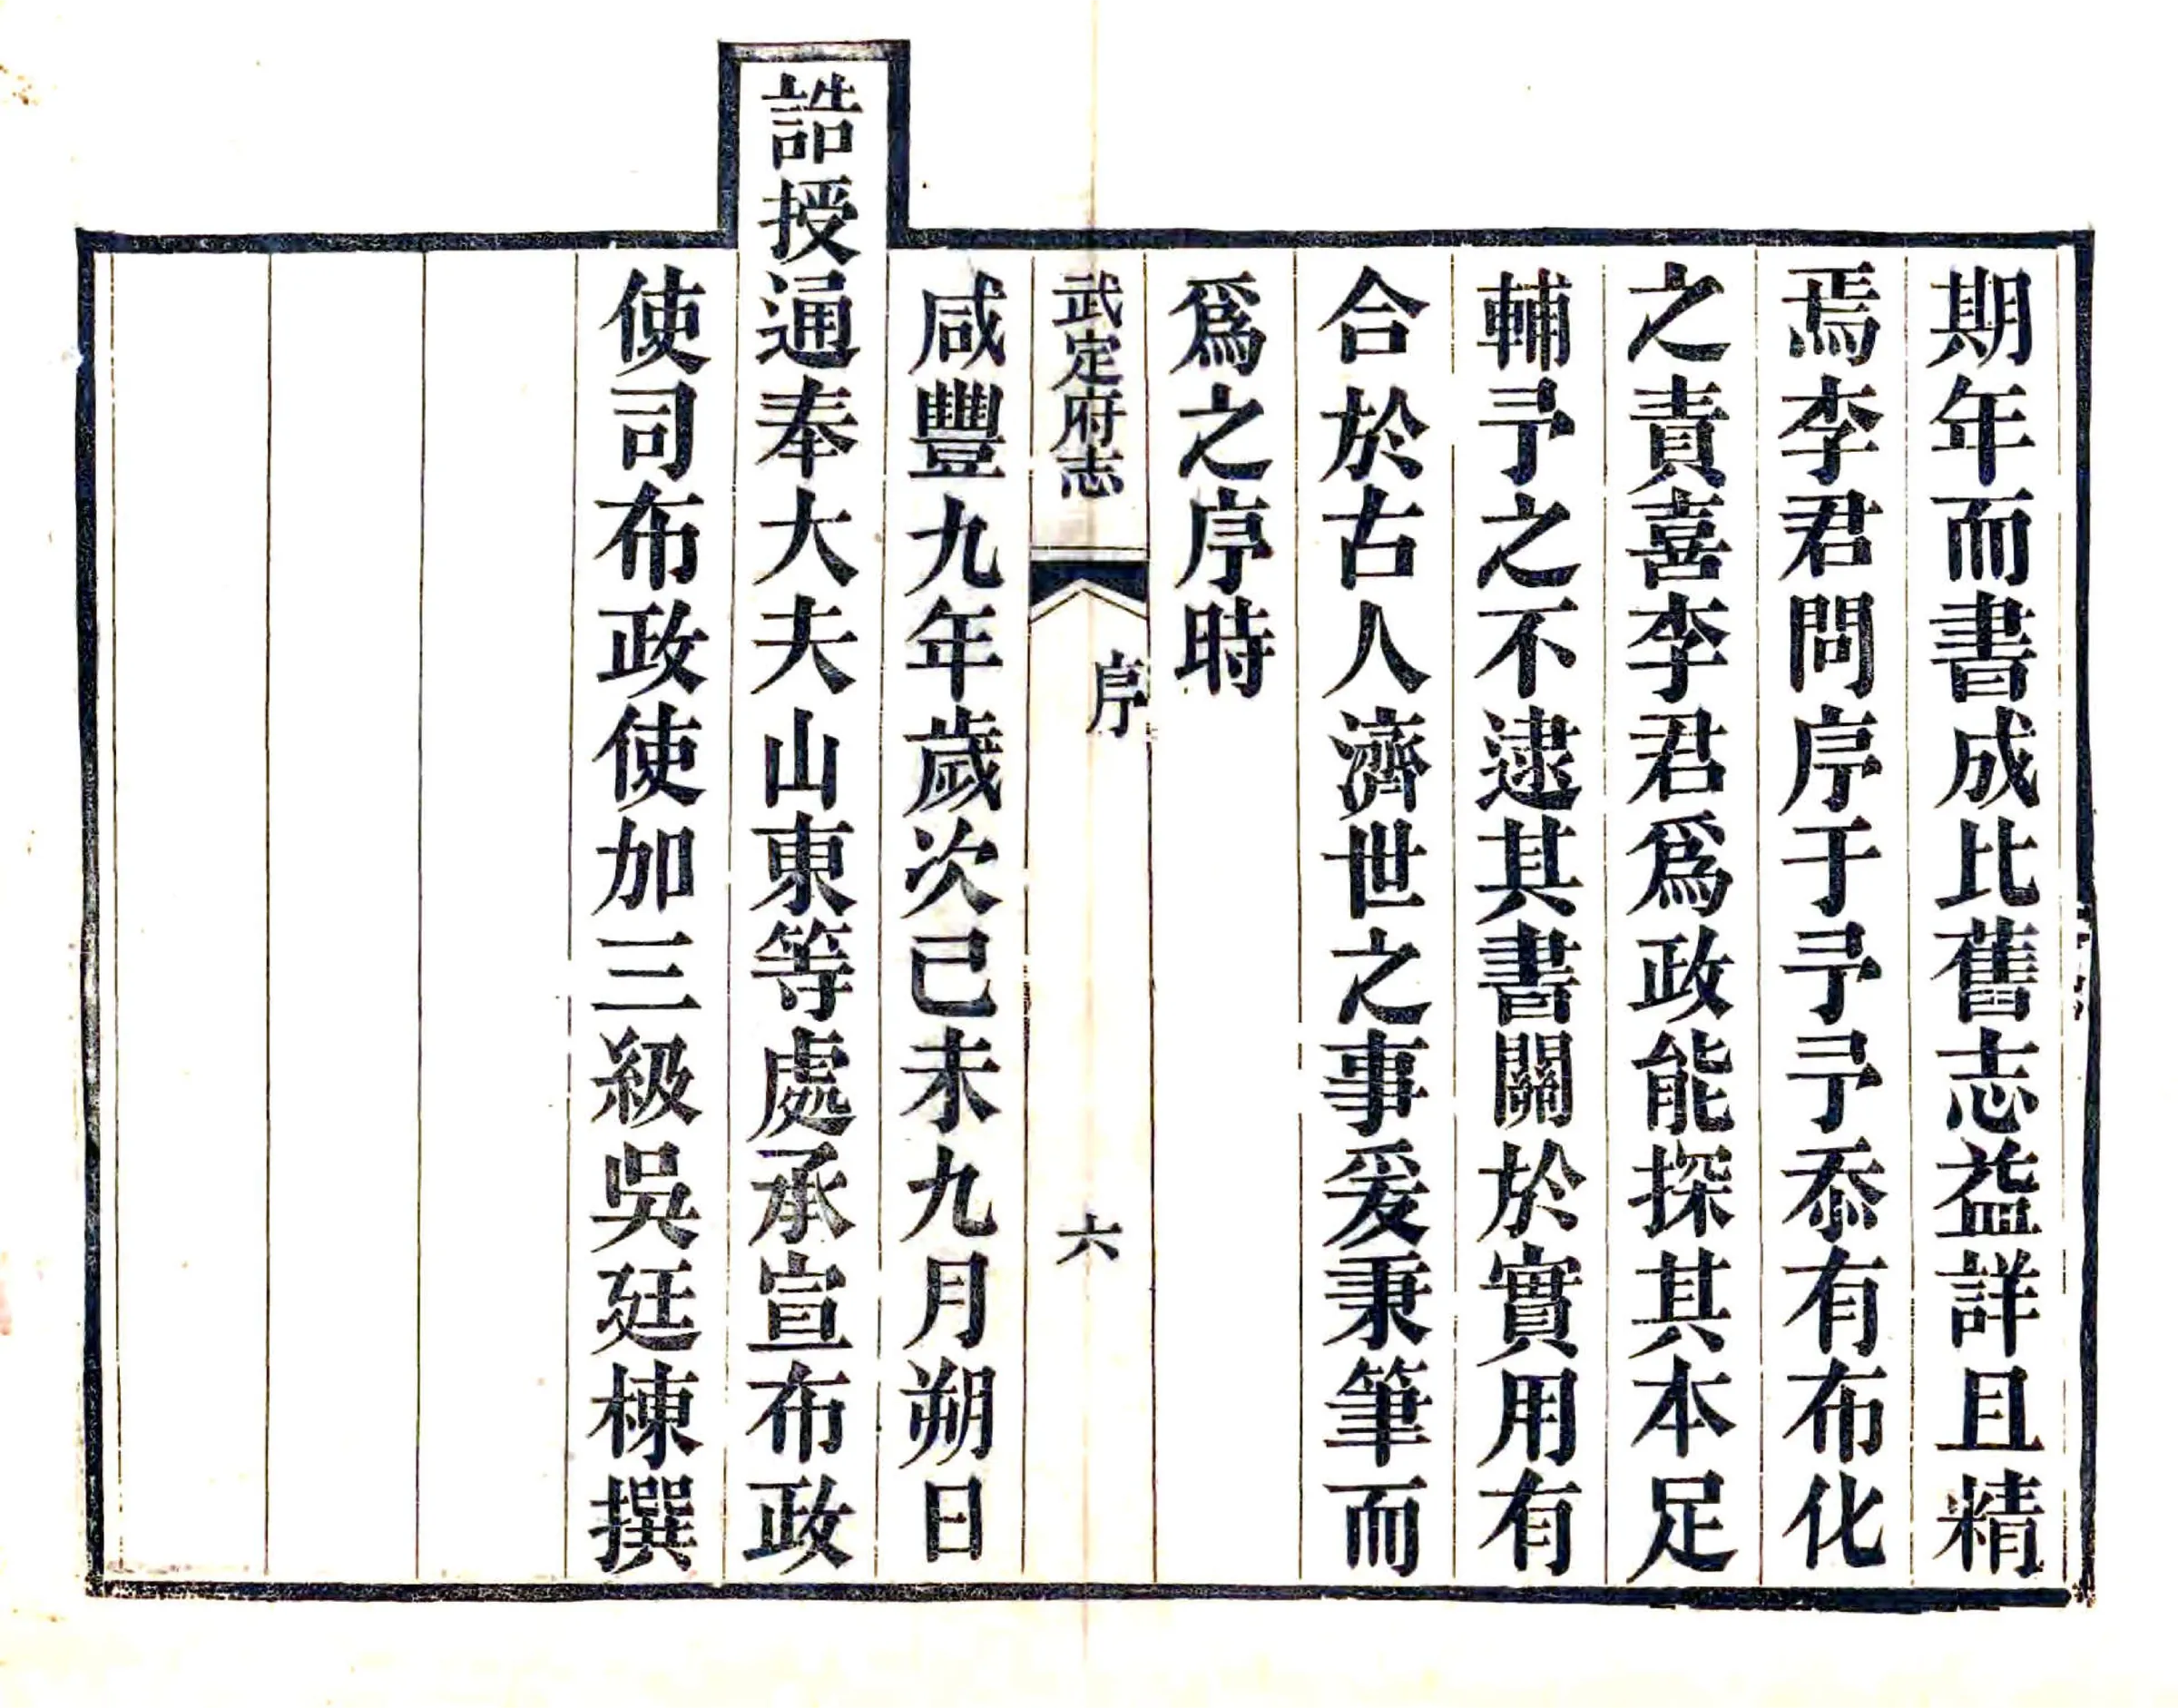 期年而書成比舊志益詳且精
焉李君問序于予予忝有布化
之責喜李君爲政能探其本足
輔予之不逮其書關於實用有
合於古人濟世之事爰秉筆而
爲之序時
武定府志
序
六
咸豐九年歲次己未九月朔日
誥授通奉大夫山東等處承宣布政
使司布政使加三級吳廷棟撰